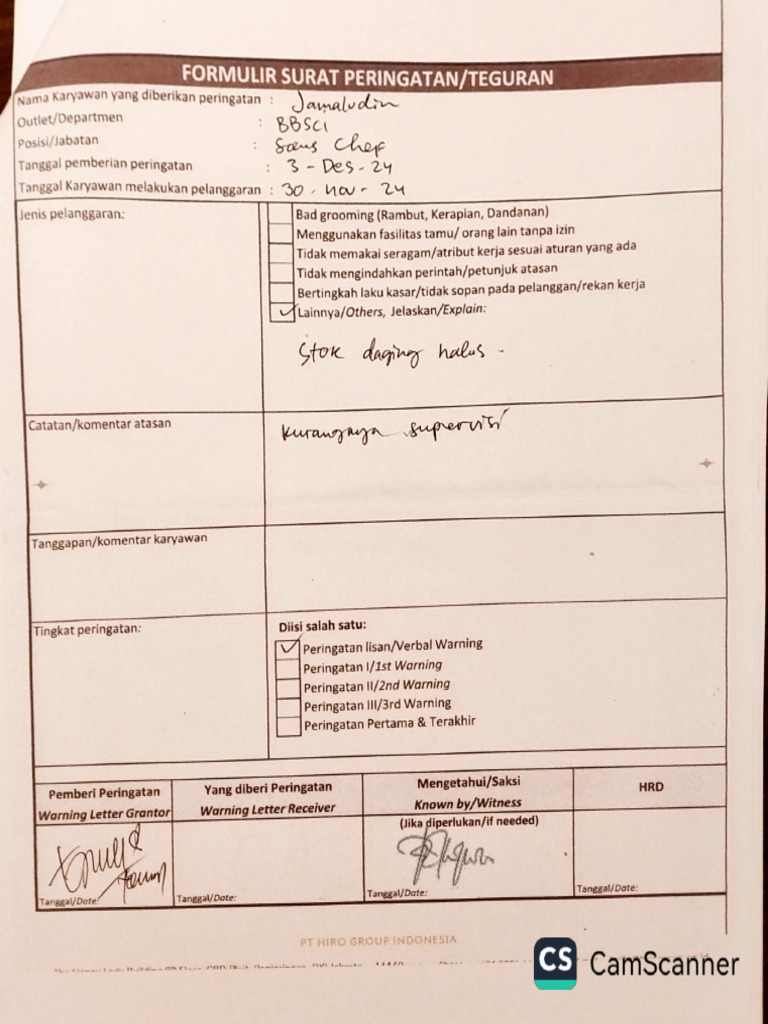 FORMULIR SURAT PERINGATAN/TEGURAN
Nama Karyawan yang diberikan peringatan : Jamaludin
Outlet/Departmen : BBSCI
Posisi/Jabatan : Sous Chef
Tanggal pemberian peringatan : 3 - Des - 24
Tanggal Karyawan melakukan pelanggaran : 30 - Nov - 24
Jenis pelanggaran:
Bad grooming (Rambut, Kerapian, Dandanan)
Menggunakan fasilitas tamu/ orang lain tanpa izin
Tidak memakai seragam/atribut kerja sesuai aturan yang ada
Tidak mengindahkan perintah/petunjuk atasan
Bertingkah laku kasar/tidak sopan pada pelanggan/rekan kerja
✓ Lainnya/Others, Jelaskan/Explain:
Stok daging halus -
Catatan/komentar atasan
Kurangnya supervisi
Tanggapan/komentar karyawan
Tingkat peringatan:
Diisi salah satu:
✓ Peringatan lisan/Verbal Warning
Peringatan I/1st Warning
Peringatan II/2nd Warning
Peringatan III/3rd Warning
Peringatan Pertama & Terakhir
Pemberi Peringatan
Warning Letter Grantor
Yang diberi Peringatan
Warning Letter Receiver
Mengetahui/Saksi
Known by/Witness
(Jika diperlukan/if needed)
HRD
Tanggal/Date:
Tanggal/Date:
Tanggal/Date:
Tanggal/Date:
PT HIRO GROUP INDONESIA
CS CamScanner